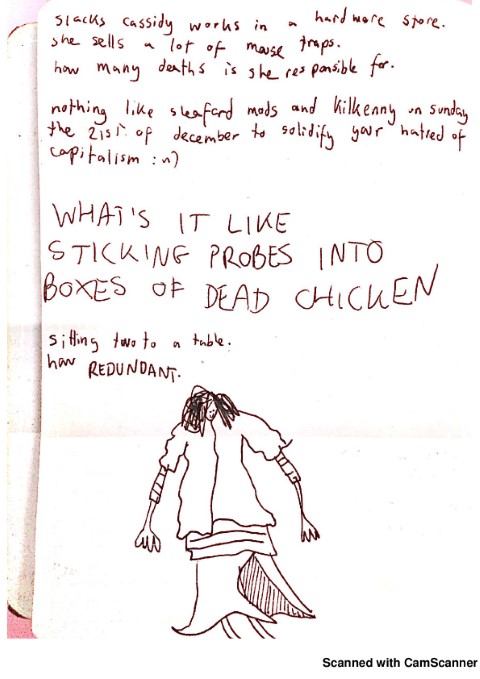 slacks cassidy works in a hardware store.
she sells a lot of mouse traps.
how many deaths is she responsible for.
nothing like sleaford mods and kilkenny on sunday
the 21st of december to solidify your hatred of
capitalism :n)
WHAT'S IT LIKE
STICKING PROBES INTO
BOXES OF DEAD CHICKEN
sitting two to a table.
how REDUNDANT.
Scanned with CamScanner